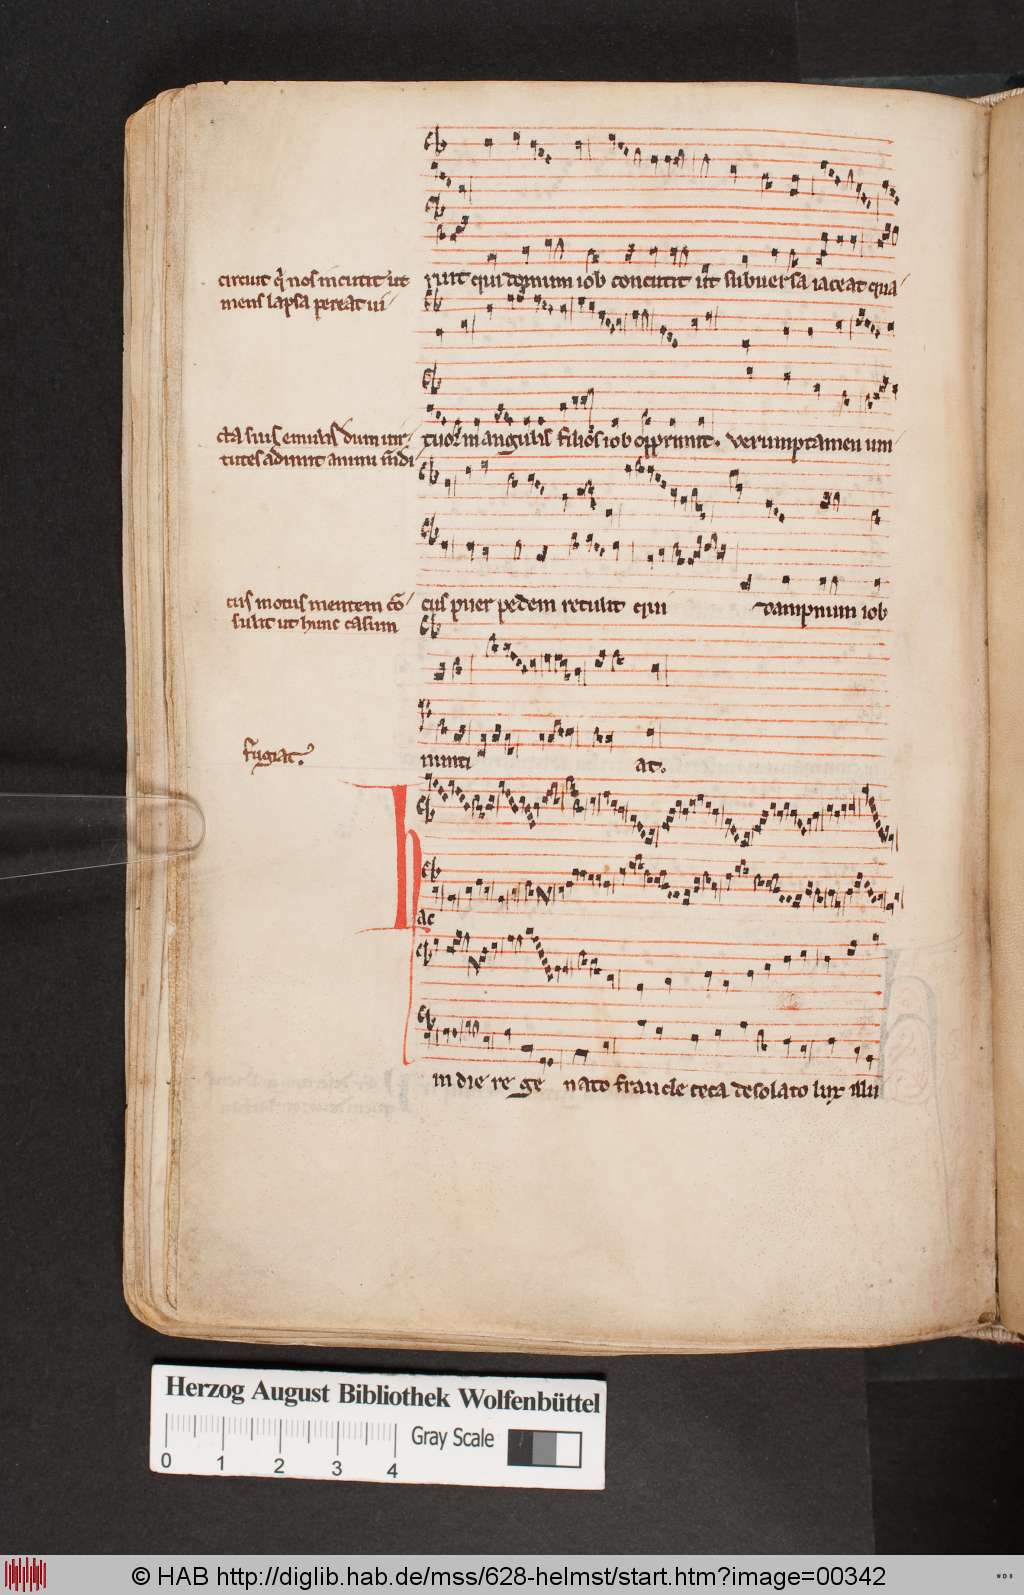 circuit q nos incutit ut
mens lapsa pereat ui
ruit qui domum iob concutit ut subuersa iaceat qua
cta suis emulis dum uir
tutes adimit animi
tuor in angulis filios iob opprimit. verumptamen um
cus motus mentem
sulit ut hunc casum
cus puer pedem retulit qui dampnum iob
fugiat.
nunti at.
Hac
in die re ge nato fraude ceca desolato lux illu
Herzog August Bibliothek Wolfenbüttel
Gray Scale
0 1 2 3 4
© HAB http://diglib.hab.de/mss/628-helmst/start.htm?image=00342